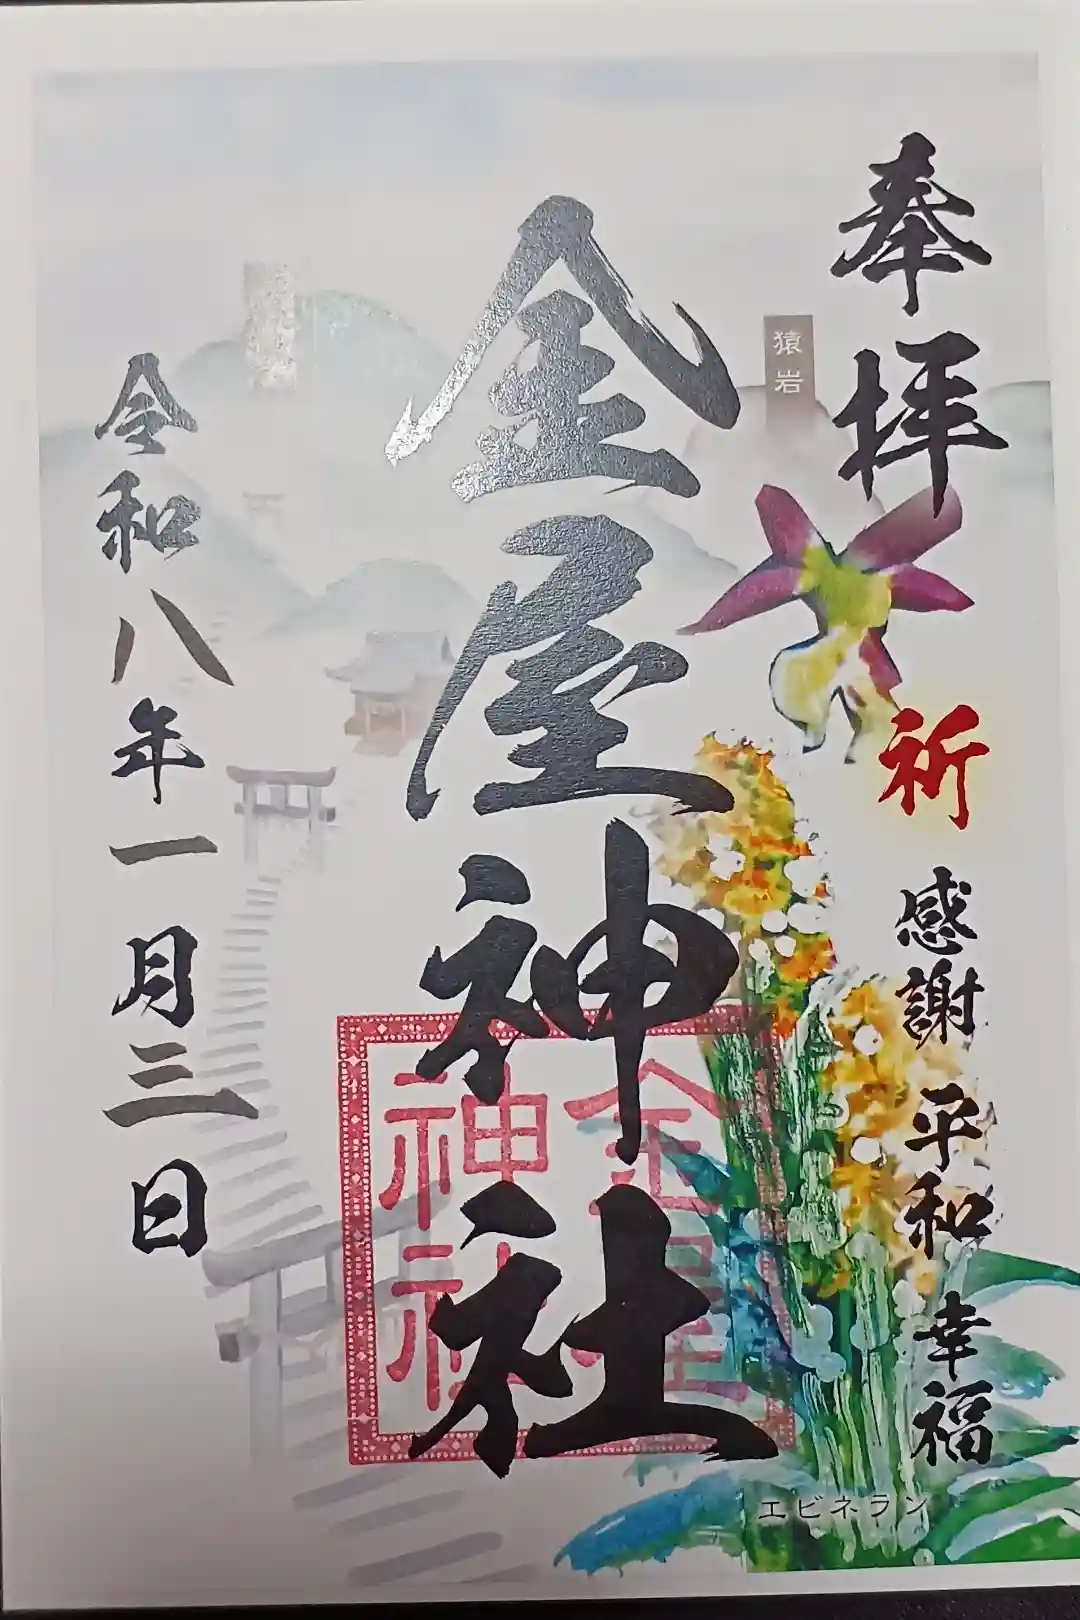 奉拝
祈 感謝 平和 幸福
猿岩
金屋神社
金屋神社
令和八年一月三日
エビネラン